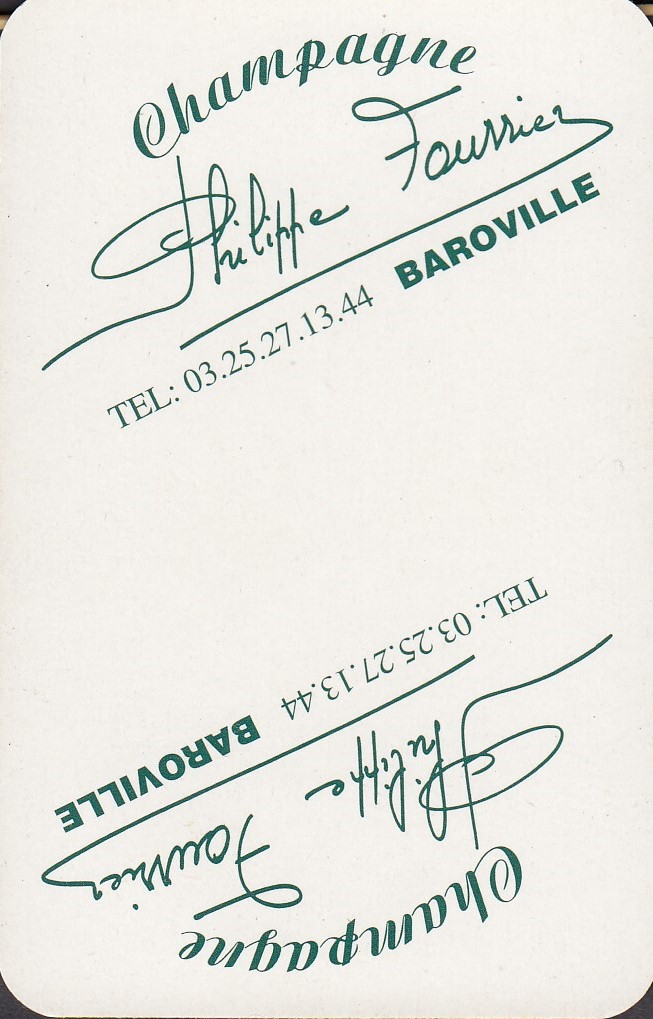 Champagne
Philippe Fourrier
BAROVILLE
TEL: 03.25.27.13.44
Champagne
Philippe Fourrier
BAROVILLE
TEL: 03.25.27.13.44